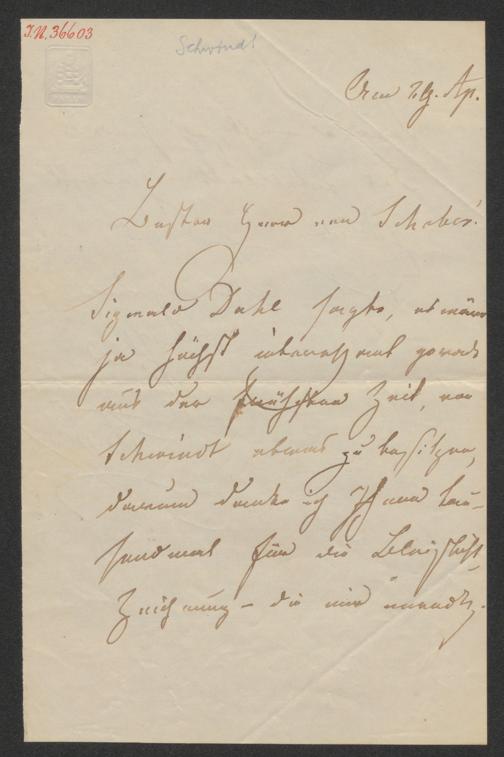 I.N. 36603
Schwindt
Am 29. Ap.
Bester Herr von Schober!
Sigwald Dahl sagte, es wäre
ja höchst interessant gerade
aus der frühsten Zeit, von
Schwindt etwas zu besitzen,
darum danke ich Ihnen tau-
sendmal für die Bleistift
Zeichnung – die mir